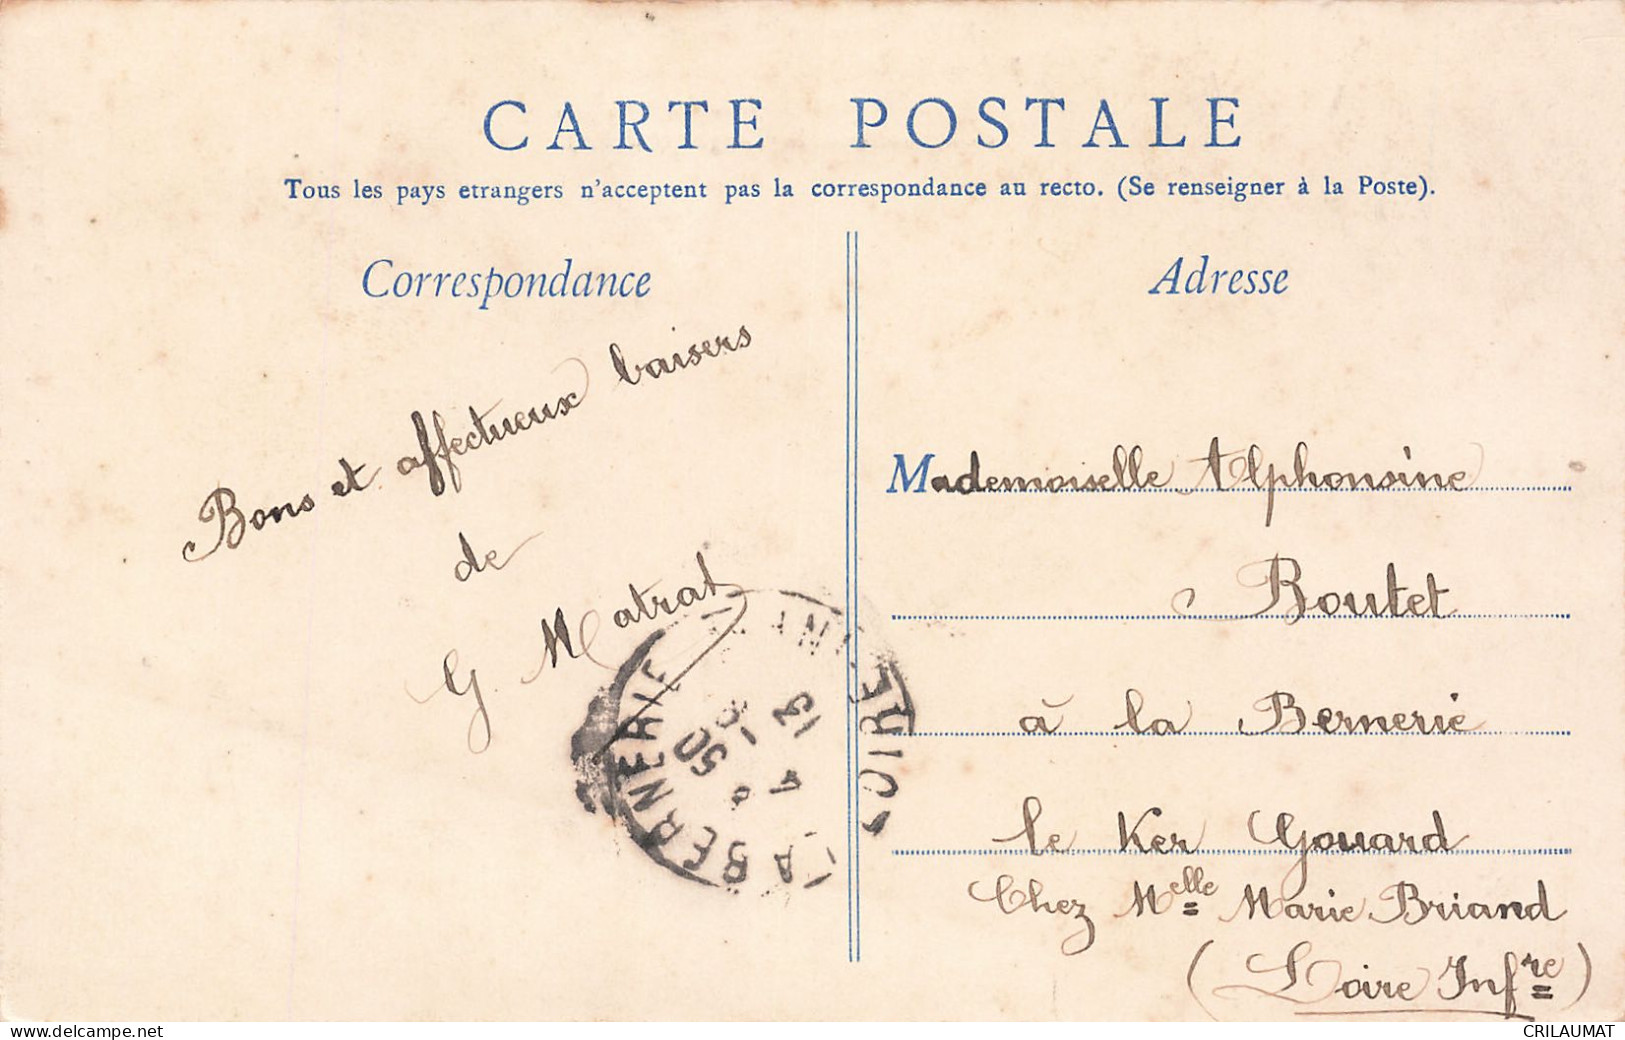 CARTE POSTALE
Tous les pays etrangers n'acceptent pas la correspondance au recto. (Se renseigner à la Poste).
Correspondance
Bons et affectueux baisers
de
G Matrat
Adresse
Mademoiselle Alphonsine
Boutet
à la Bernerie
le Ker Gouard
Chez Melle Marie Briand
(Loire Infre)
LA BERNERIE
LOIRE
50
13
delcampe.net
CRILAUMAT